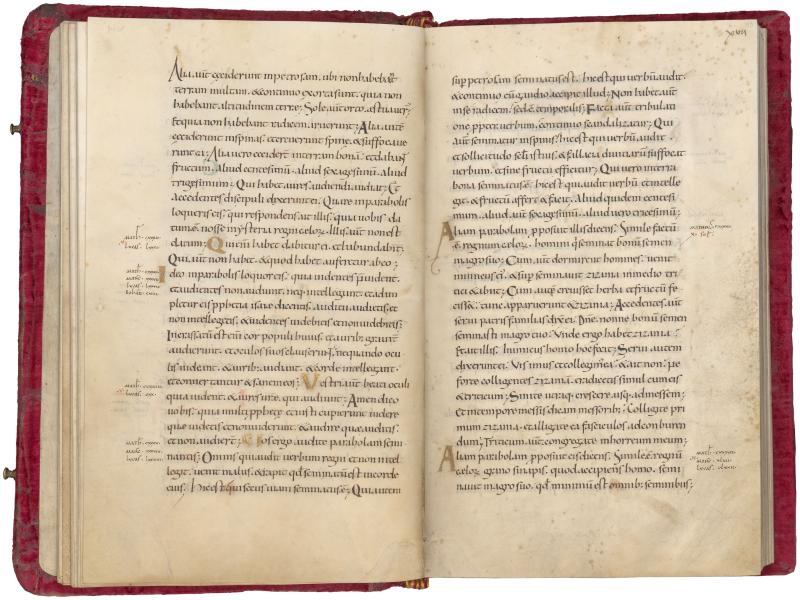 Alia aut ceciderunt in petrosam. ubi non habebat
terram multam. & continuo exorta sunt. quia non
habebant altitudinem terrae; Sole aut orto. aestuaver
& quia non habebant radicem. aruerunt; Alia aute
ceciderunt in spinas. & creverunt spine. & suffocave
runt ea; Alia vero cecidert in terram bonam. et dabant
fructum. aliud centesimu. aliud sexagesimu. aliud
trigesimum; Qui habet aures audiendi. audiat; Et
accedentes discipuli dixerunt ei; Quare in parabolis
loqueris eis; qui respondens ait illis; quia vobis da
tum e nosse mysteria regni caeloz. illis aut non est
datum; Qui eni habet. dabitur ei. & abundabit;
Qui aut non habet. & quod habet auferetur ab eo;
Ideo in parabolis loquor eis. quia videntes non vident.
et audientes non audiunt. neq; intellegunt. et adim
pletur eis pphetia isaie dicentis. auditu audietis. et
non intellegetis. & videntes videbitis et non videbitis;
Incrassatu est eni cor populi huius. et auribz gravit
audierunt. et oculos suos clauserunt. nequando ocu
lis videant. & auribz audiant. & corde intellegant.
et convertantur & sanem eos; Vestri aut beati oculi
quia vident. & aures vre. qui audiunt; Amen dico
vobis. quia multi pphete et iusti cupierunt videre
quae videtis et non viderunt. & audire quae auditis.
et non audiert; Vos ergo audite parabolam semi
nantis; Omnis qui audit verbum regni et non intel
legit. venit malus. & rapit qd seminatu est in corde
eius; Hic est. qui secus viam seminatus e; Qui autem
sup petrosam seminatus est. hic est qui verbu audit.
& continuo cu gaudio accipit illud; Non habet aut
in se radicem. sed e temporalis; Facta aut tribulati
one ppter verbum. continuo scandalizatur; Qui
aut seminatur in spinis. hic est qui verbu audit.
et sollicitudo scli istius. & fallacia divitiaru suffocat
verbum. et sine fructu efficitur; Qui vero in terra
bona seminatus e. hic est qui audit verbu et intelle
git. & fructu affert & facit. Aliud quidem centesi
mum. aliud aut sexagesimu. aliud vero tricesimu;
Aliam parabolam pposuit illis dicens; Simile factu
e regnum caeloz. homini q seminat bonu semen
in agro suo; Cum aut dormirent homines. venit
inimicus ei. & sup seminavit zizania in medio tri
tici & abiit; Cum aut crevisset herba et fructu fe
cisset. tunc apparuerunt & zizania; Accedentes aut
servi patris familias dixer ei; Dne. nonne bonu semen
seminasti in agro tuo; Unde ergo habet zizania;
Et ait illis. Inimicus homo hoc fecit; Servi autem
dixerunt ei; Vis imus et colligim ea. & ait non. ne
forte colligentes zizania. eradicetis simul cum eis
& triticum; Sinite utraq; crescere usq; ad messem;
Et in tempore messis dicam messoribz; Colligite pri
mum zizania. et alligite ea fasciculos ad conburen
dum; Triticum aut congregate in horreum meum;
Aliam parabolam pposuit eis dicens; Simile e regnu
caeloz grano sinapis. quod accipiens homo. semi
navit in agro suo. qd minimu est omnibz seminibus;